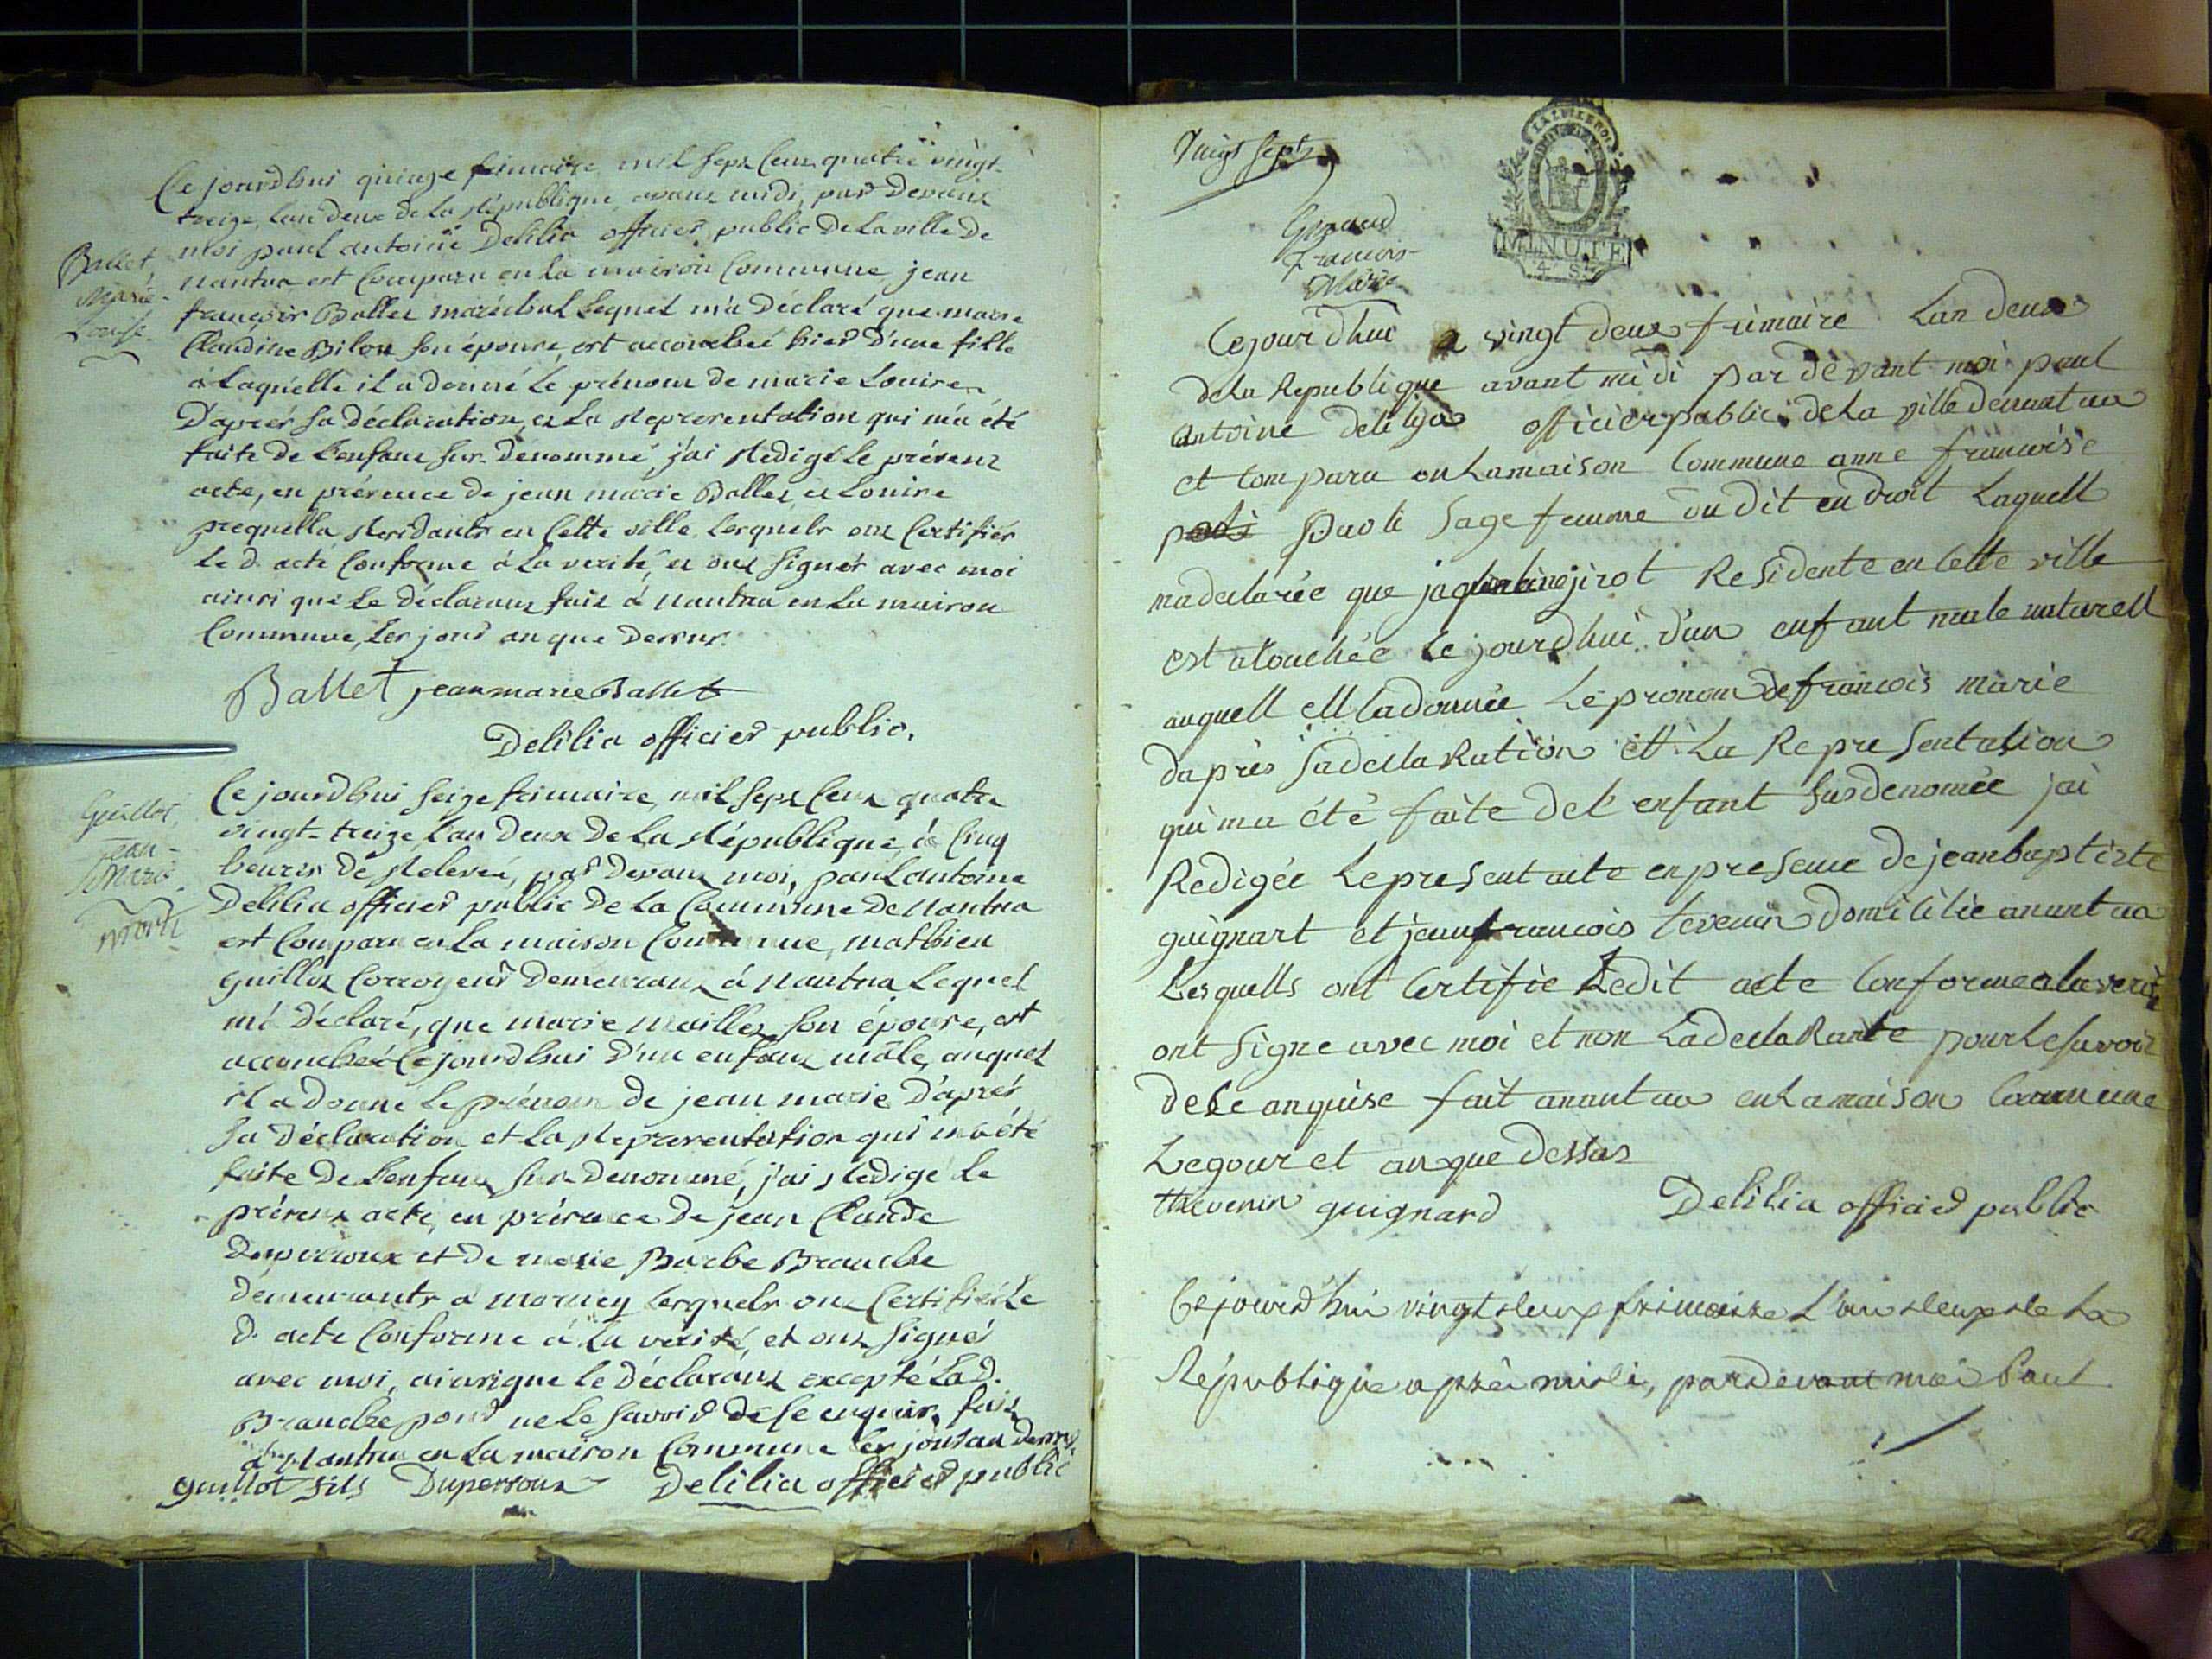 Ce jourdhui quinze frimaire mil sept cent quatre vingt
treize, l'an deux de la République, avant midi, par devant
moi paul antoine Delilia officier public de la ville de
nantua est comparu en la maison commune jean
françois Ballet maréchal lequel m'a déclaré que marie
Claudine Bilon son épouse, est accouchée hier d'une fille
à laquelle il a donné le prénom de marie Louise
D'après sa déclaration, et la Représentation qui m'a été
faite de l'enfant sur-dénommé, j'ai Redigé le présent
acte, en présence de jean marie Ballet et Louise
Residants en cette ville lesquels ont certifiés
le d. acte conforme à la verité, et ont signés avec moi
ainsi que le déclarant fait à nantua en la maison
commune, les jour an que dessus.
Ballet
Marie
Louise
Ballet jean marie Ballet
Delilia officier public.
Guillot
jean-
Marie
mort
Ce jourdhui seize frimaire, mil sept cent quatre
vingt-treize, l'an deux de la République, à cinq
heures de Relevée, par devant moi, paul antoine
Delilia officier public de la commune de Nantua
est comparu en la maison commune, mathieu
guillot corroyeur demeurant à nantua lequel
m'a déclaré, que marie maillet son épouse, est
accouchée cejourdhui d'un enfant mâle, auquel
il a donné le prénom de jean marie D'après
sa déclaration et la Représentation qui m'a été
faite de l'enfant sur-denommé, j'ai Redigé le
présent acte, en présence de jean Claude
Duperroux et de marie Barbe Branche
demeurants à mornay lesquels ont certifié le
d. acte conforme à la vérité, et ont signés
avec moi, ainsi que le déclarant excepté la d.
Branche pour ne le savoir de ce enquise, fait
à Nantua en la maison commune les jour an dessus.
guillot fils Duperroux Delilia officier public
Vingt sept
françois-
Marie
MINUTE
4. S.
Cejour dhui a vingt deux frimaire Lan deux
dela Republique avant midi par dévant moi paul
antoine delilia officier public dela ville denantua
et comparu en Lamaison Commune anne francoise
Paoli Sage femme du dit endroit Laquell
madeclarée que jaquelinejirot Residente en Cette ville
est acouchée Le jourdhui d'un enfant male naturell
auquell ell ladonnée Le pronom defrancois marie
daprès sadeclaRation ett La Representation
qui ma été faite del enfant susdenomée jai
Redigée Lepresent acte enpresence dejeanbaptiste
guignart et jeanfrancois tevenin domicilie anantua
Lesquells ont Certifie Ledit acte Conformealaverité
ont signe avec moi et non LadeclaRante pourLesavoir
dece anquise fait anantua enLamaison Commune
Legour et anque dessus
thevenin guignard Delilia officier public
Cejourd'hui vingt deux frimaire L'an deux de la
République après midi, pardevant moi Paul